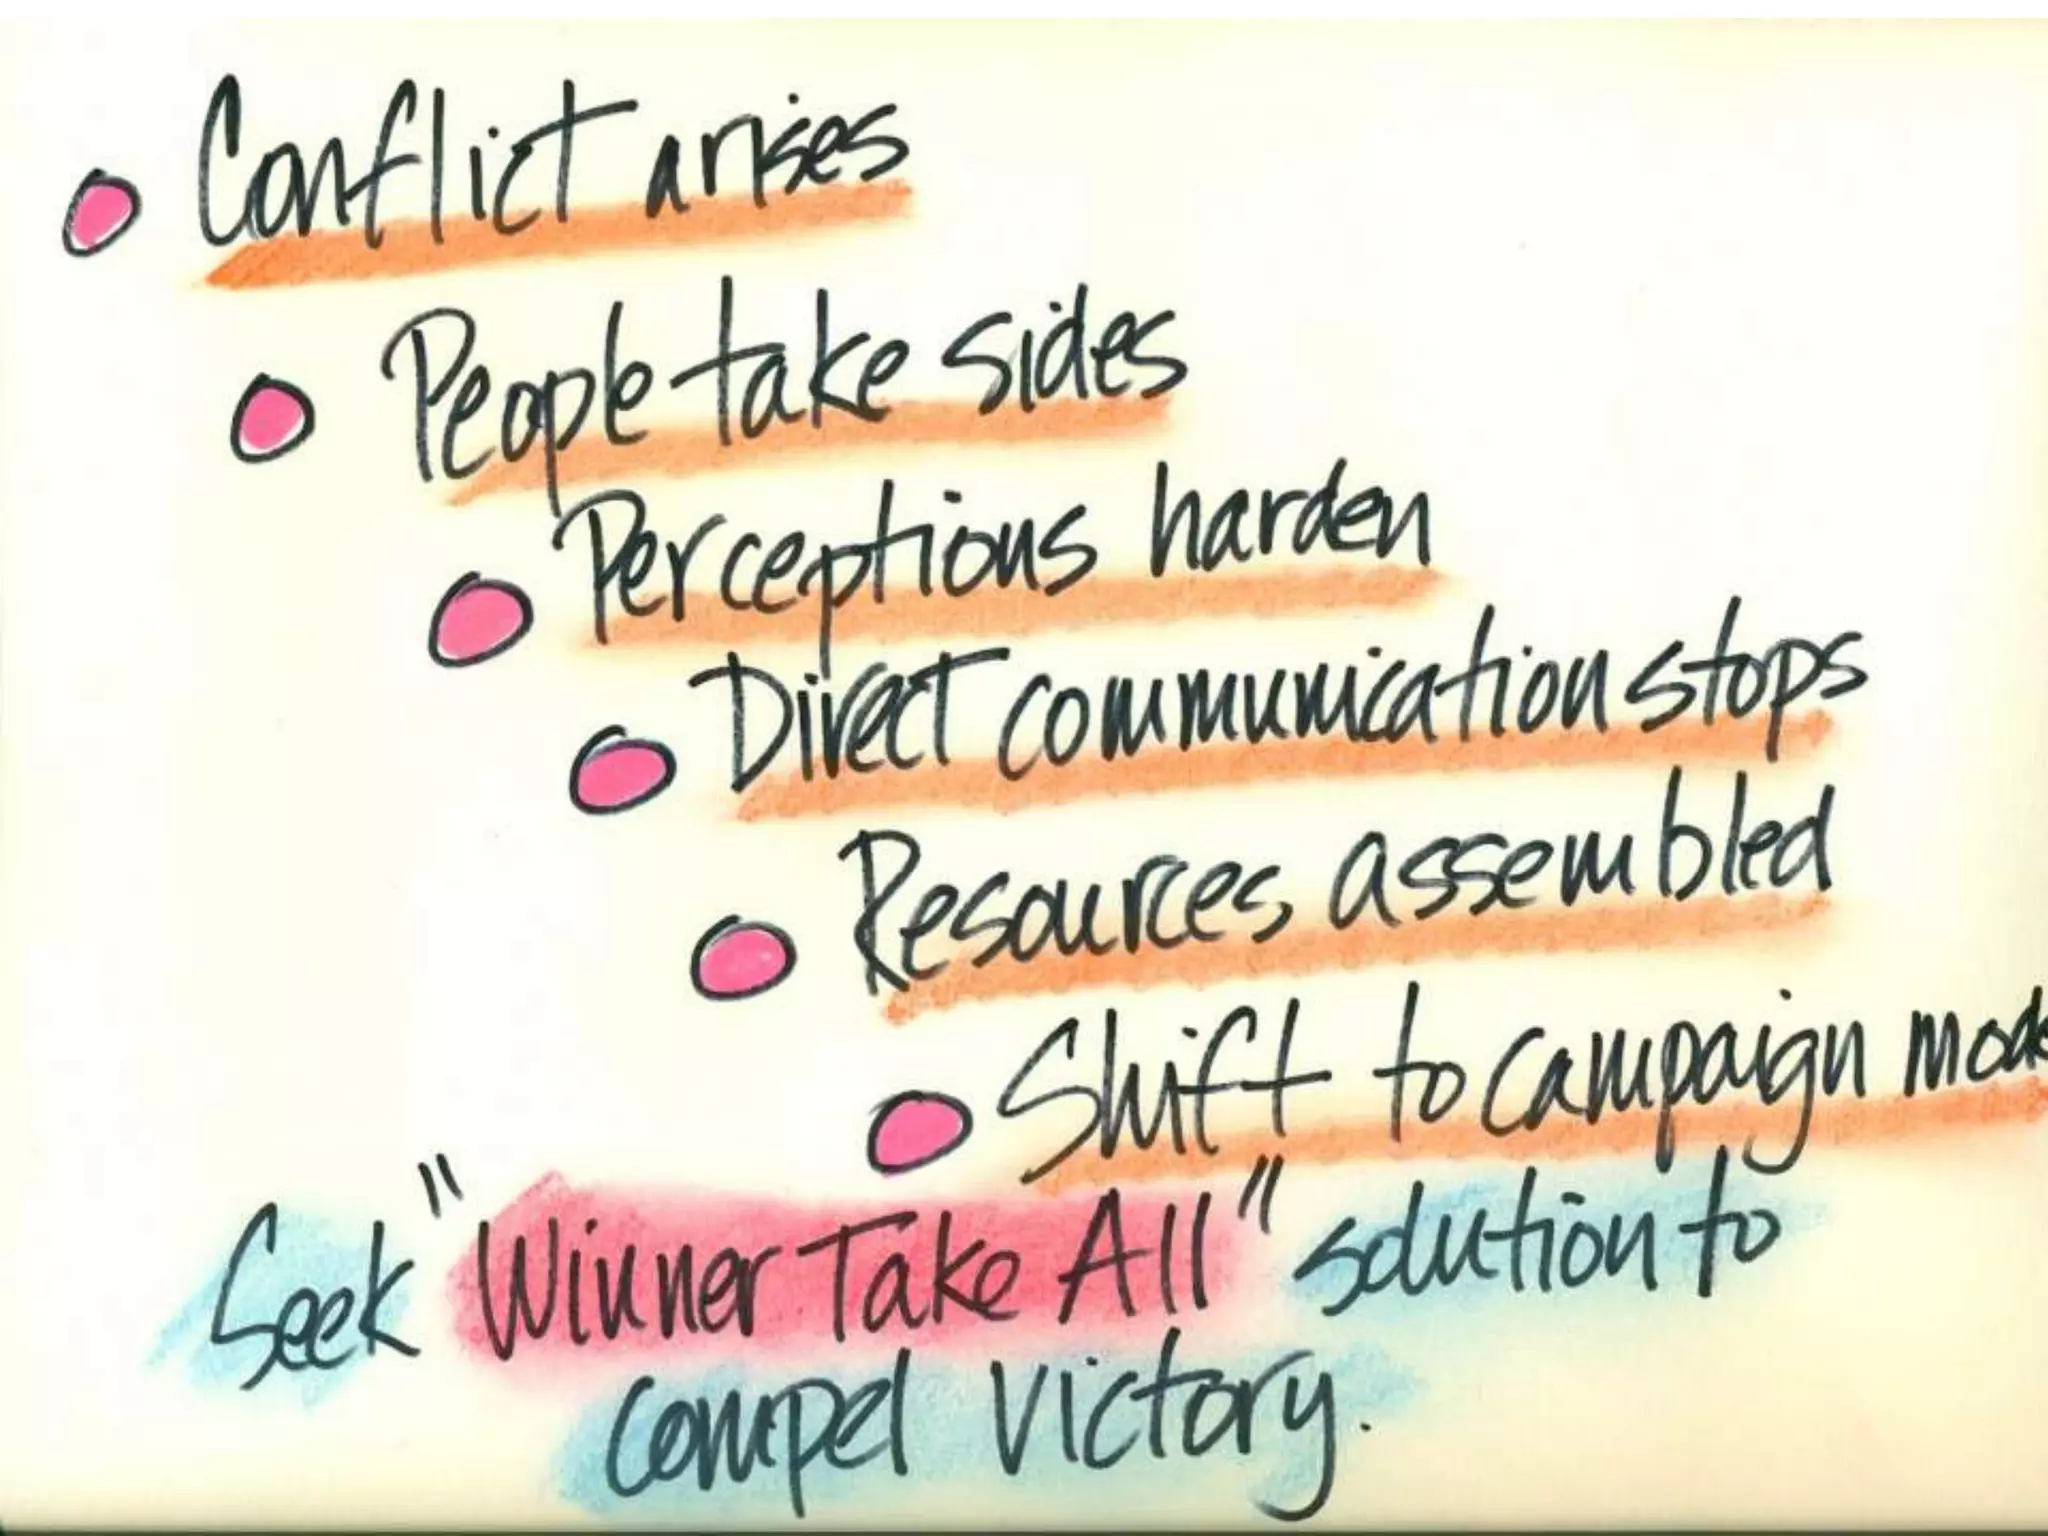 Conflict arises
People take sides
Perceptions harden
Direct communication stops
Resources assembled
Shift to campaign mode
Seek "Winner Take All" solution to
compel victory.